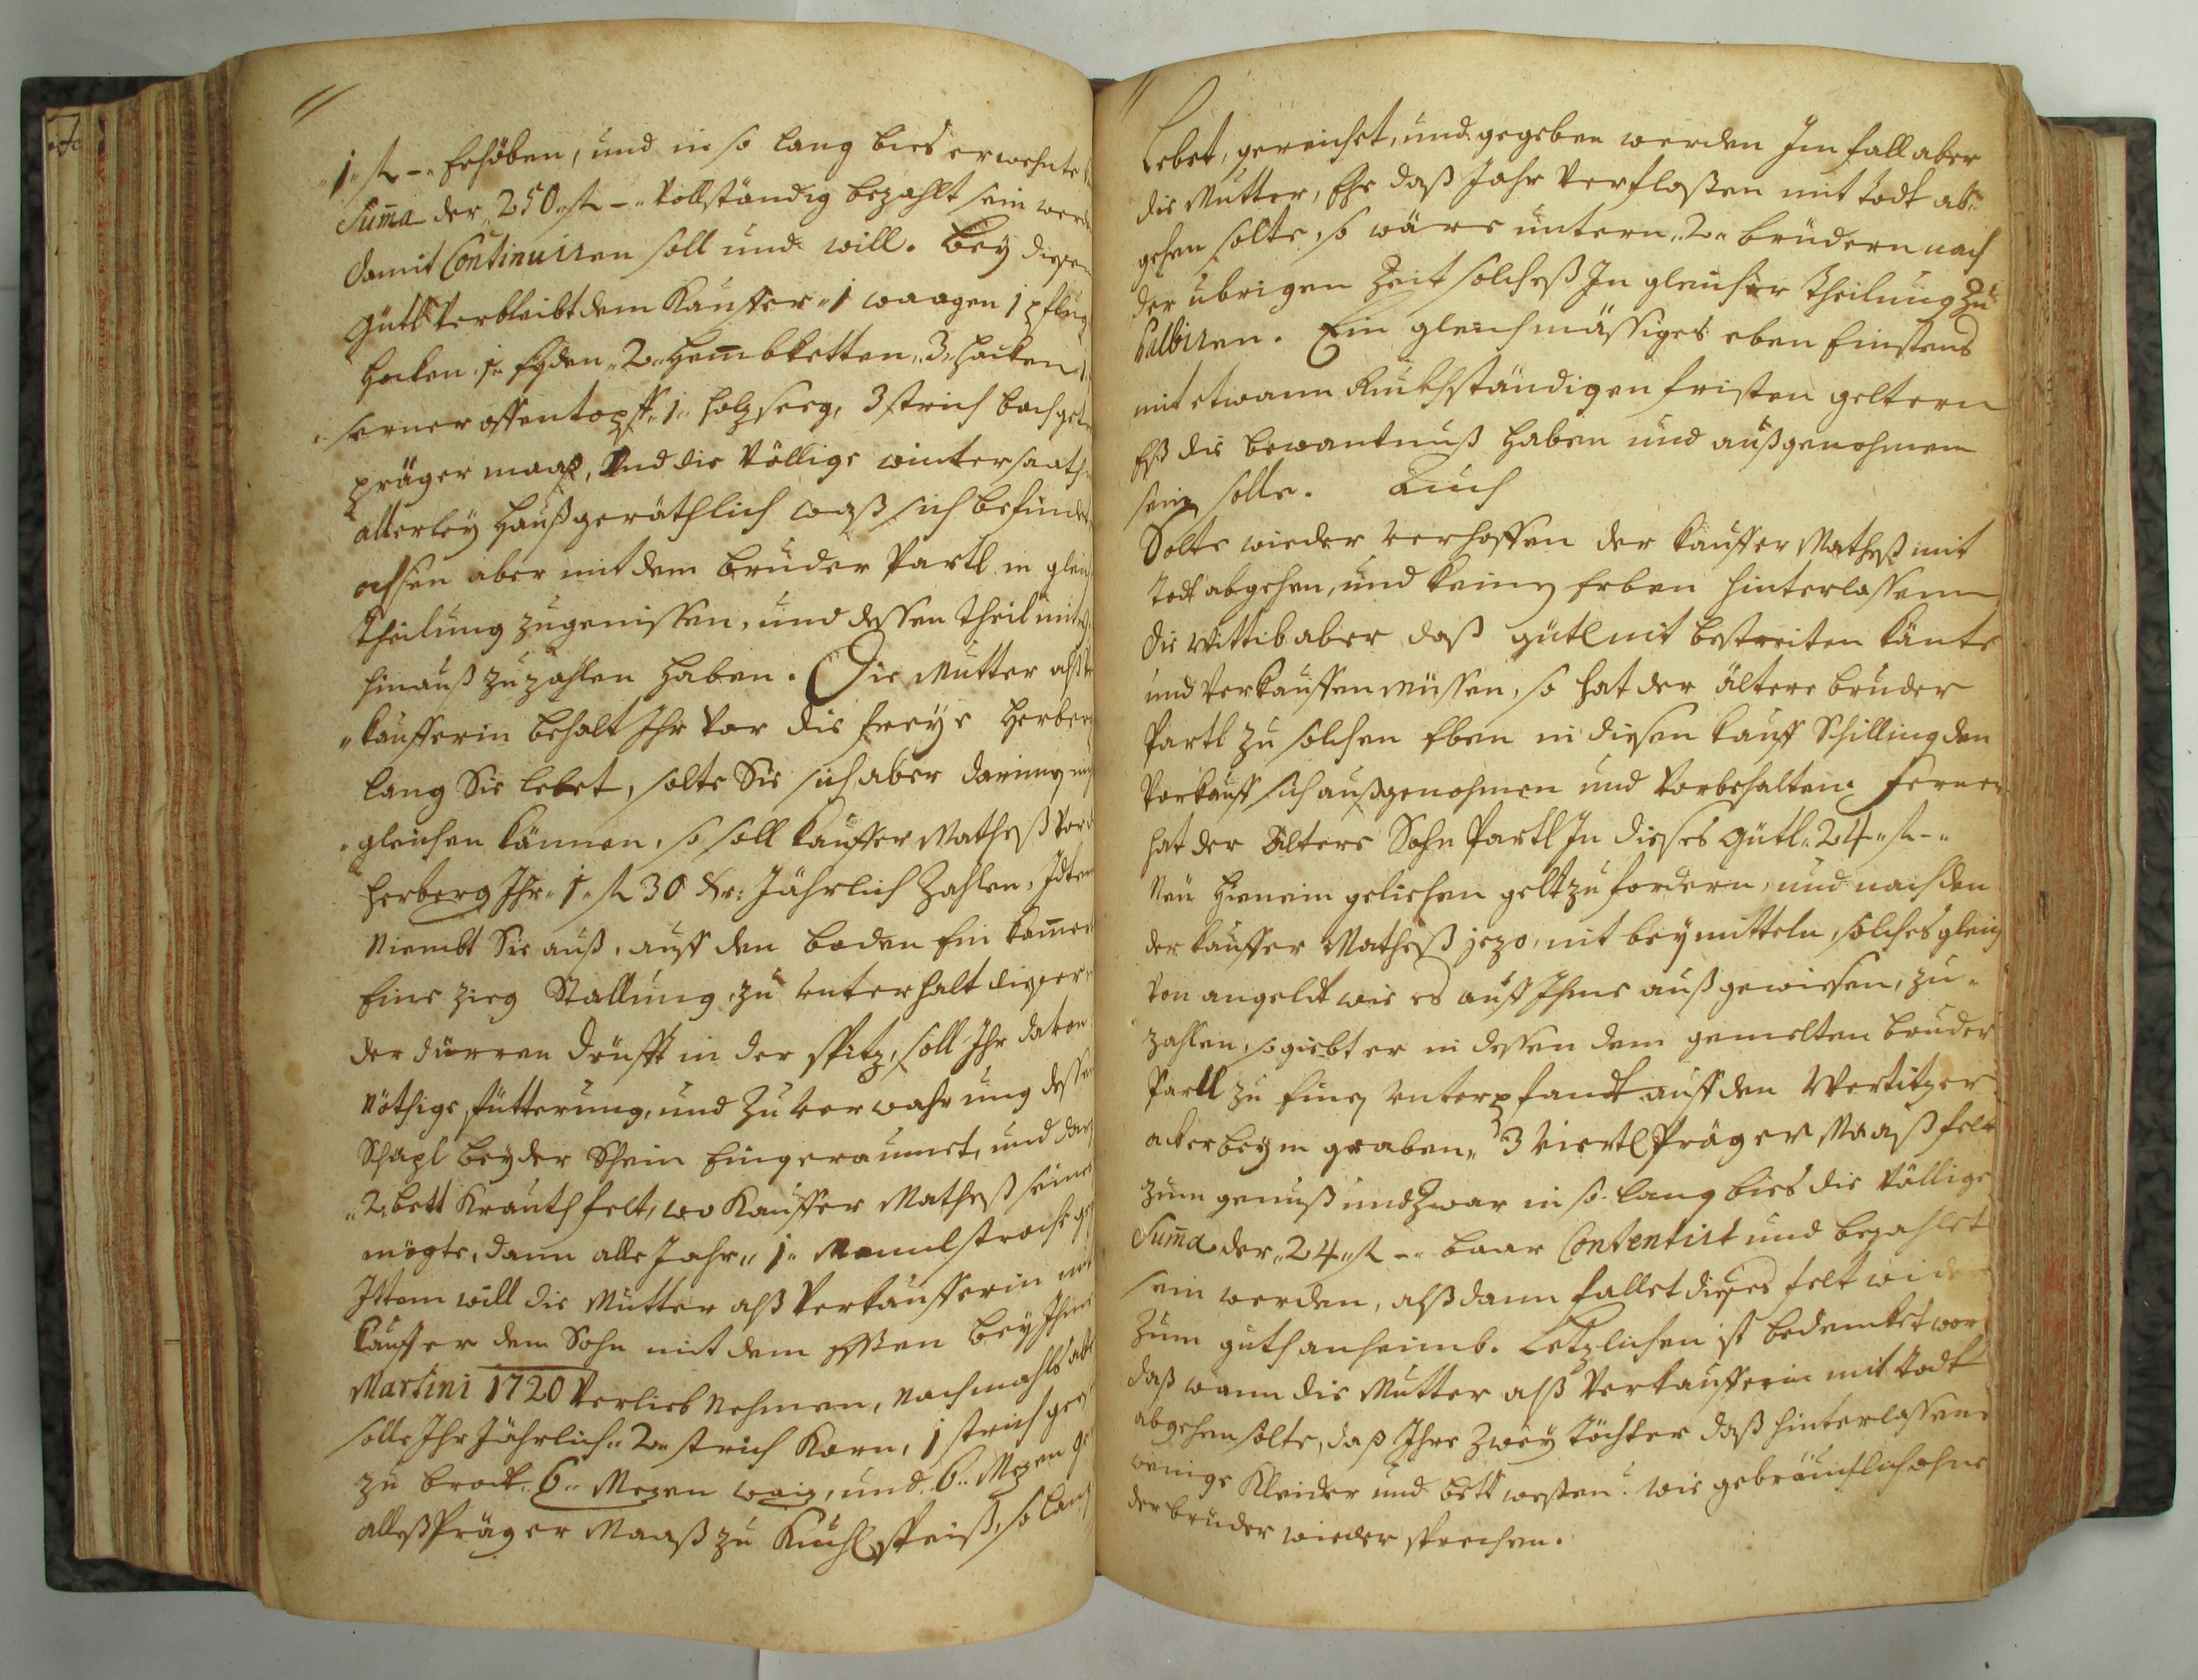 1 fl - Erhöben, und in so lang bies erwehnte
Suma der 250 fl - vollständig bezahlt sein werd
damit Continuiren soll und will. Bey diesen
güttl Verbleibt dem Kauffer 1 waagen 1 pflug
Hacken 1 2 Hembketten, 3 Hacken 1
offentopff 1 holzseeg, 3 strich
präger maas, Und die Völlige wintersaath
allerley Haußgeräthlich waß sich befindet
ochsen aber mit dem Bruder Partl in gleich
Theilung zugenissen, und dessen Theil mit
hinauß zu zahlen haben. Die Mutter alß
kaufferin behalt Ihr vor die freye Herberg
lang Sie lebet, solte Sie sich aber darinnen
gleichen können, so soll Kauffer Matheß
Herberg Ihr 1 fl 30 Kr: Jährlich zahlen, Item
Niembt Sie auß, auff den Boden Ein Kamer
Eine zieg Stallung, zu Unterhalt dieser
der dürren in der spitz, soll Ihr davon
Nöthige fütterung, und zu Verwahrung dessen
Schüpl bey der Schein Eingeraumet, und
2 bett Krauthfelt, wo Kauffer Matheß seines
mögte, dann alle Jahr 1
Ittem will die Mutter alß Verkaufferin mit
Kauffer dem Sohn mit dem Essen bey Ihme
Martini 1720 Verlieb Nehmen, Nachmahls
solle Ihr Jährlich 2 strich Korn, 1 strich
zu brodt 6 Mezen waiz, und 6 Mezen
alleß präger Maaß zu Kuchlspeiß, so lang
Lebet, gereichet, und gegeben werden Im fall aber
die Mutter, Ehe daß Jahr Verflossen mit todt ab-
gehen solte, so wäre untern 2 Brüdern nach
der übrigen Zeit solcheß In gleicher Theilung zu
halbiren. Ein gleichmässiges eben Einstens
mit etwann Ruckständigen fristen geltern
Eß die bewantnuß haben und außgenohmen
sein solle. Auch
Solte wieder verhoffen der kauffer Matheß mit
todt abgehen, und keine Erben hinterlassen
die Wittib aber daß gütl nit bestreiten känte
und Verkauffen müssen, so hat der ältere Bruder
Partl zu solchen Eben in diesen kauff Schilling den
Vorkauff sich außgenohmen und Vorbehalten. ferner
hat der ältere Sohn Partl In dieses gütl 24 fl -
Neu hienein geliehen gelt zu fordern, und nach den
der kauffer Matheß jezo nit bey mitteln, solches gleich
von angeldt wie es auff Ihme außgewiesen, zu-
zahlen, so giebt er in dessen dem gemelten Bruder
Partl zu Einen Unterpfandt auff den Wertitzer
acker beym graben 3 Viertl Präger Maaß felt
zum genuß und zwar in so lang bies die Völlige
Suma der 24 fl - baar Contentirt und bezahlet
sein werden, alß dann fallet dieses felt wider
zum guth anheimb. Letzlichen ist bedencket wor
daß wann die Mutter alß Verkaufferin mit todt
abgehen solte, daß Ihre zwey Töchter daß hinterlassene
wenige Kleider und bett wie gebräuchlich ohne
der brüder wieder sprechen.